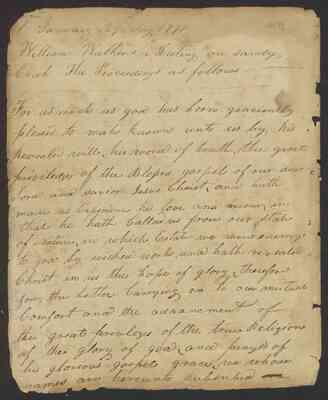 January
William Watkins
Creek The Proceedings as follows
For as much as god has been graciously
pleased to make known unto us by his
revealed will, his word of truth, the great
privileges of the Blesed gospel of our dear
lord and savior Jesus Christ, and hath
made us his love and mercy in
that he hath Called us from our state
of nature, in which Estate we ware enemy
to god by wicked works, and hath revealed
Christ in us the hope of glory, therefore
for the better Carrying on to our mutual
Comfort and the advancement of
the great privileges of the true Religion
of the glory of god and prays of
his glorious gospels grace, we whose
names are hereunto subscribed